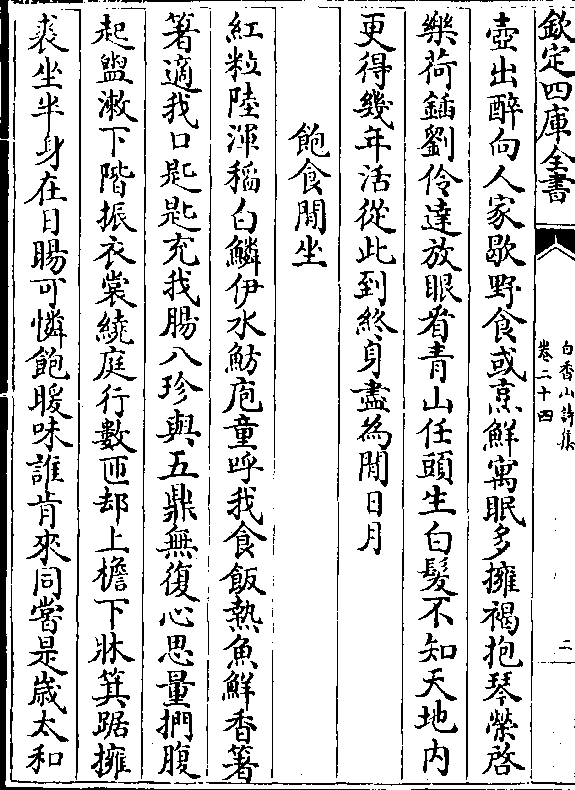 欽定四庫全書
白香山詩集
卷二十四
二
壺出醉向人家歇野食或烹鮮寓眠多擁褐抱琴榮啓
樂荷鍤劉伶達放眼看青山任頭生白髮不知天地內
更得幾年活從此到終身盡為閒日月
飽食閒坐
紅粒陸渾稻白鱗伊水魴庖童呼我食飯熱魚鮮香箸
箸適我口匙匙充我腸八珍與五鼎無復心思量捫腹
起盥漱下階振衣裳繞庭行數匝却上檐下牀箕踞擁
裘坐半身在日暘可憐飽暖味誰肯來同嘗是歲太和